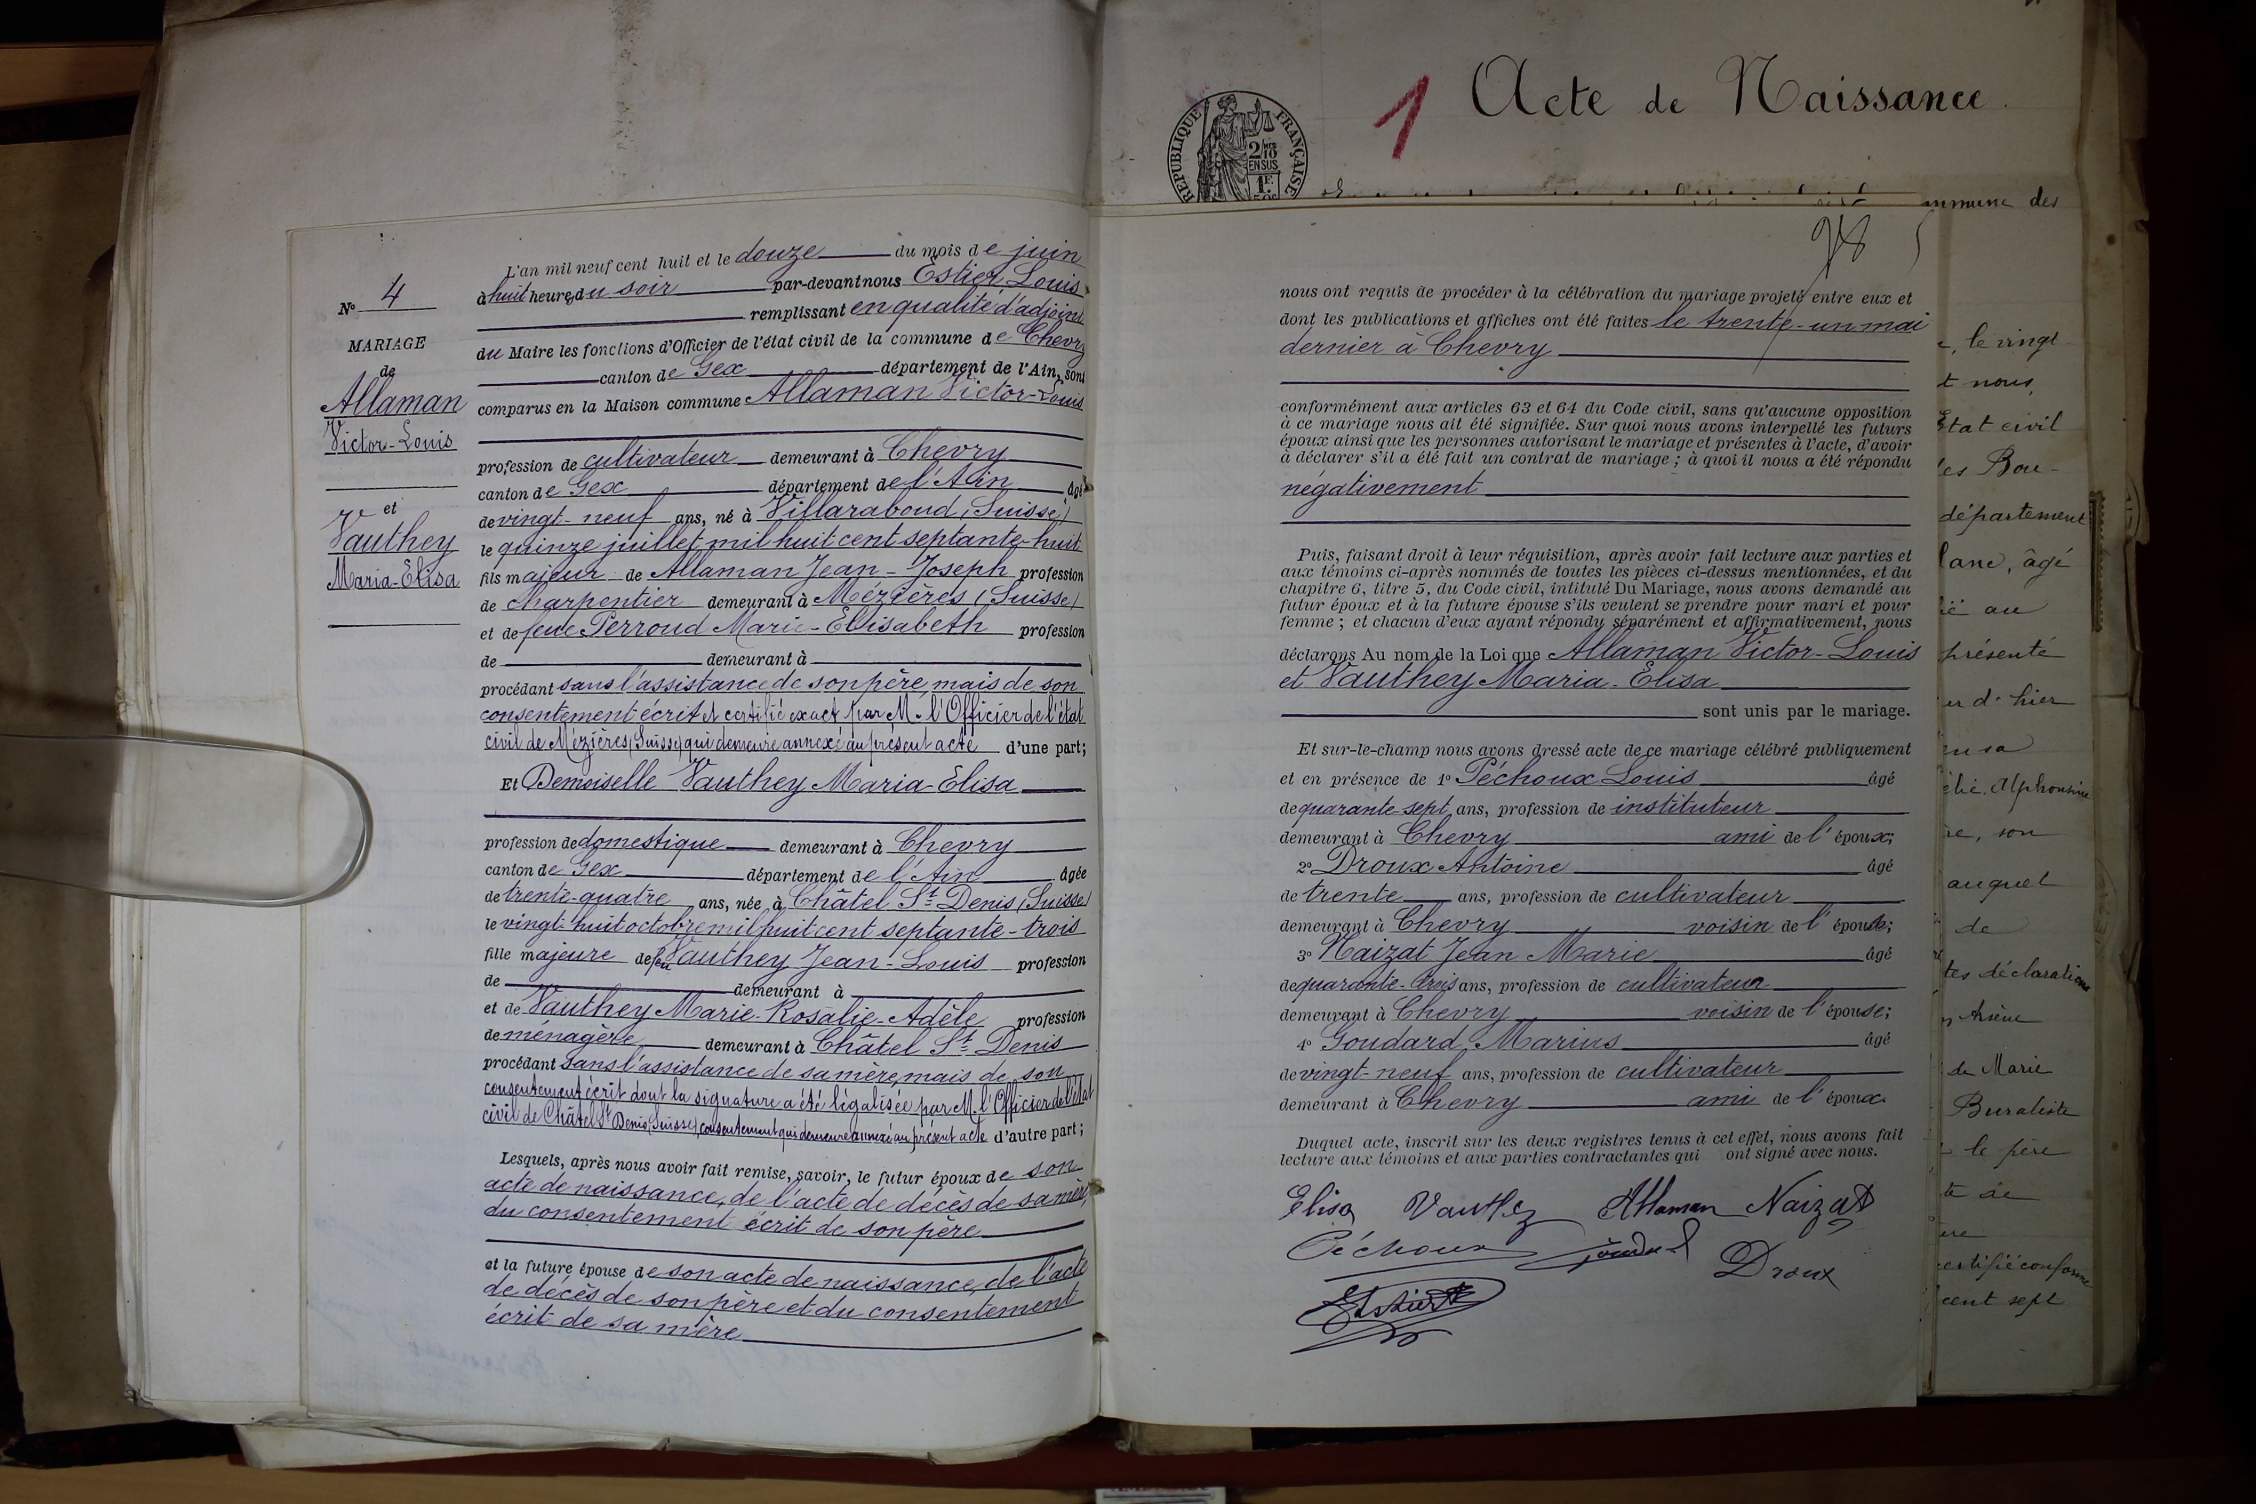 N° 4
MARIAGE
de
Allaman
Victor-Louis
et
Vauthey
Maria-Elisa
L'an mil neuf cent huit et le douze du mois de juin
à huit heures du soir par-devant nous Estier Louis
remplissant en qualité d'adjoint
du Maire les fonctions d'Officier de l'état civil de la commune de Chevry
canton de Gex département de l'Ain, sont
comparus en la Maison commune Allaman Victor-Louis
profession de cultivateur demeurant à Chevry
canton de Gex département de l'Ain âgé
de vingt-neuf ans, né à Villaraboud (Suisse)
le quinze juillet mil huit cent septante-huit
fils majeur de Allaman Jean-Joseph profession
de charpentier demeurant à Mézières (Suisse)
et de feue Perroud Marie-Elisabeth profession
de demeurant à
procédant sans l'assistance de son père, mais de son
consentement écrit et certifié exact par M. l'Officier de l'état
civil de Mézières (Suisse) qui demeure annexé au présent acte d'une part;
Et Demoiselle Vauthey Maria-Elisa
profession de domestique demeurant à Chevry
canton de Gex département de l'Ain âgée
de trente-quatre ans, née à Châtel St Denis (Suisse)
le vingt-huit octobre mil huit cent septante-trois
fille majeure de feu Vauthey Jean-Louis profession
de demeurant à
et de Vauthey Marie-Rosalie-Adèle profession
de ménagère demeurant à Châtel St Denis
procédant sans l'assistance de sa mère, mais de son
consentement écrit dont la signature a été légalisée par M. l'Officier de l'état
civil de Châtel St Denis (Suisse), consentement qui demeure annexé au présent acte d'autre part;
Lesquels, après nous avoir fait remise, savoir, le futur époux de son
acte de naissance, de l'acte de décès de sa mère,
du consentement écrit de son père
et la future épouse de son acte de naissance, de l'acte
de décès de son père et du consentement
écrit de sa mère
1 Acte de Naissance.
RÉPUBLIQUE FRANÇAISE
2/10 EN SUS
1F.
mmune des
nous ont requis de procéder à la célébration du mariage projeté entre eux et
dont les publications et affiches ont été faites le trente-un mai
dernier à Chevry
conformément aux articles 63 et 64 du Code civil, sans qu'aucune opposition
à ce mariage nous ait été signifiée. Sur quoi nous avons interpellé les futurs
époux ainsi que les personnes autorisant le mariage et présentes à l'acte, d'avoir
à déclarer s'il a été fait un contrat de mariage; à quoi il nous a été répondu
négativement
Puis, faisant droit à leur réquisition, après avoir fait lecture aux parties et
aux témoins ci-après nommés de toutes les pièces ci-dessus mentionnées, et du
chapitre 6, titre 5, du Code civil, intitulé Du Mariage, nous avons demandé au
futur époux et à la future épouse s'ils veulent se prendre pour mari et pour
femme; et chacun d'eux ayant répondu séparément et affirmativement, nous
déclarons Au nom de la Loi que Allaman Victor-Louis
et Vauthey Maria-Elisa
sont unis par le mariage.
Et sur-le-champ nous avons dressé acte de ce mariage célébré publiquement
et en présence de 1° Péchoux Louis âgé
de quarante-sept ans, profession de instituteur
demeurant à Chevry ami de l'époux;
2° Droux Antoine âgé
de trente ans, profession de cultivateur
demeurant à Chevry voisin de l'époux;
3° Naizat Jean Marie âgé
de quarante-trois ans, profession de cultivateur
demeurant à Chevry voisin de l'épouse;
4° Goudard Marius âgé
de vingt-neuf ans, profession de cultivateur
demeurant à Chevry ami de l'époux.
Duquel acte, inscrit sur les deux registres tenus à cet effet, nous avons fait
lecture aux témoins et aux parties contractantes qui ont signé avec nous.
Elisa Vauthey Allaman Naizat
Péchoux Goudard Droux
Estier
, le vingt
t nous,
État civil
es Bou-
département
lanc, âgé
au
présenté
d'hier
Alphonsine
son
auquel
de
tes déclarations
Arsène
de Marie
Buraliste
le père
te de
certifié conforme
cent sept